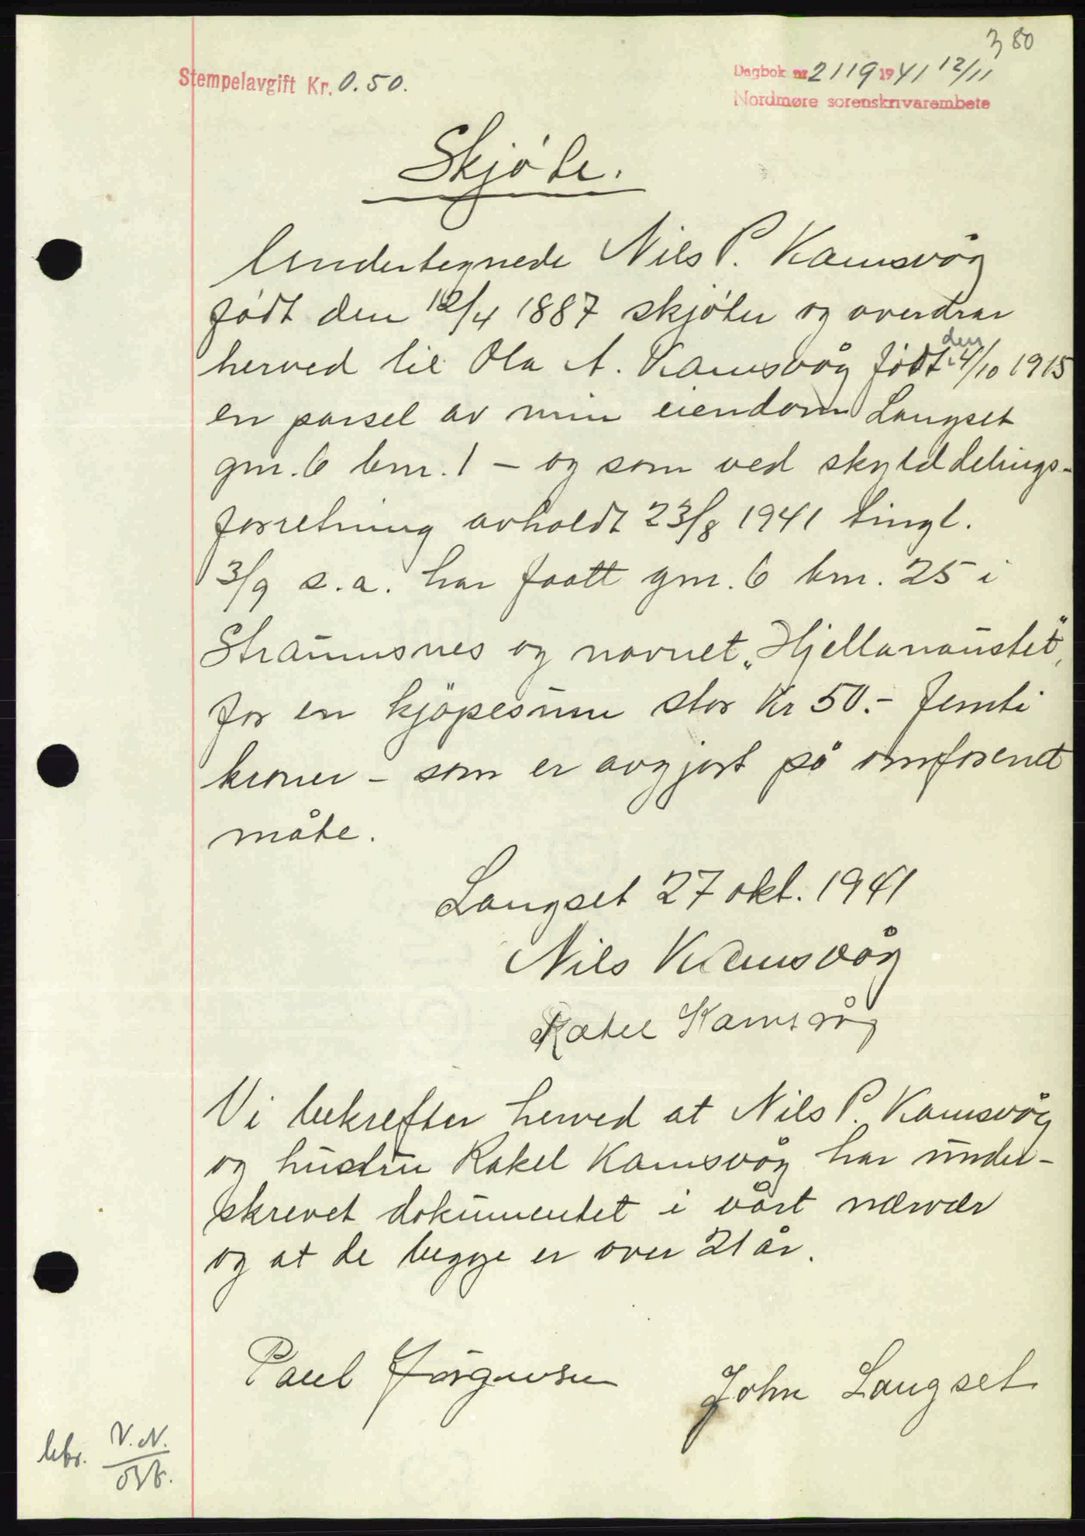 380
Stempelavgift Kr. 0.50.
Dagbok nr 2119 1941 12/11
Nordmøre sorenskrivarembete
Skjøte.
Undertegnede Nils P. Kamsvåg
født den 12/4 1887 skjøter og overdrar
herved til Ola A. Kamsvåg født den 4/10 1915
en parsel av min eiendom Langset
gnr. 6 bnr. 1 – og som ved skylddelings-
forretning avholdt 23/8 1941 tingl.
3/9 s.a. har faatt gnr. 6 bnr. 25 i
Straumsnes og navnet „Hjellanaustet",
for en kjöpesum stor Kr 50.- femti
kroner – som er avgjort på omforenet
måte.
Langset 27 okt. 1941
Nils Kamsvåg
Rakel Kamsvåg
Vi bekrefter herved at Nils P. Kamsvåg
og hustru Rakel Kamsvåg har under-
skrevet dokumentet i vårt nærvær
og at de begge er over 21 år.
Paul Jörgensen John Langset
V.N.